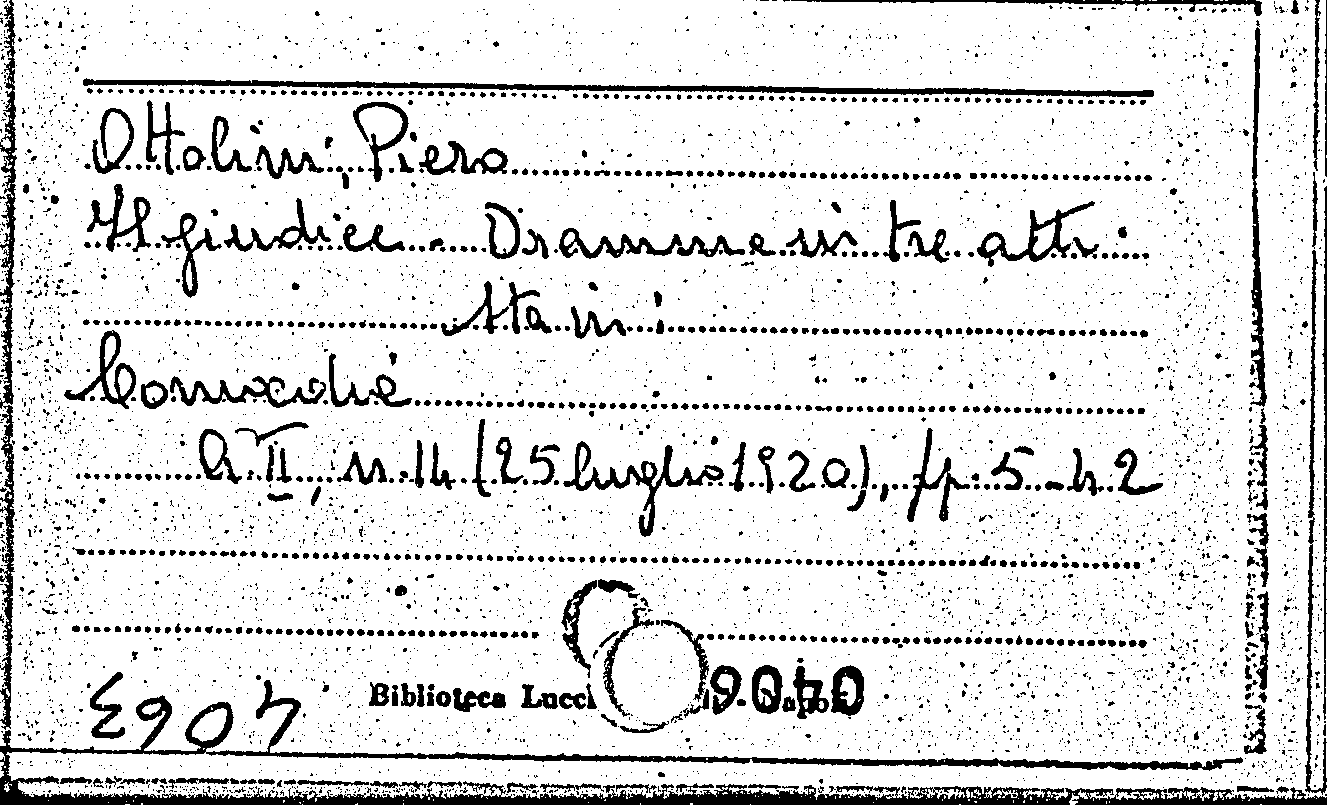 Ottolini, Piero
Il giudice - Dramma in tre atti.
Sta in:
Comoedia
A. II, n. 14 (25 luglio 1920), pp. 5-42
Biblioteca Lucc 9040